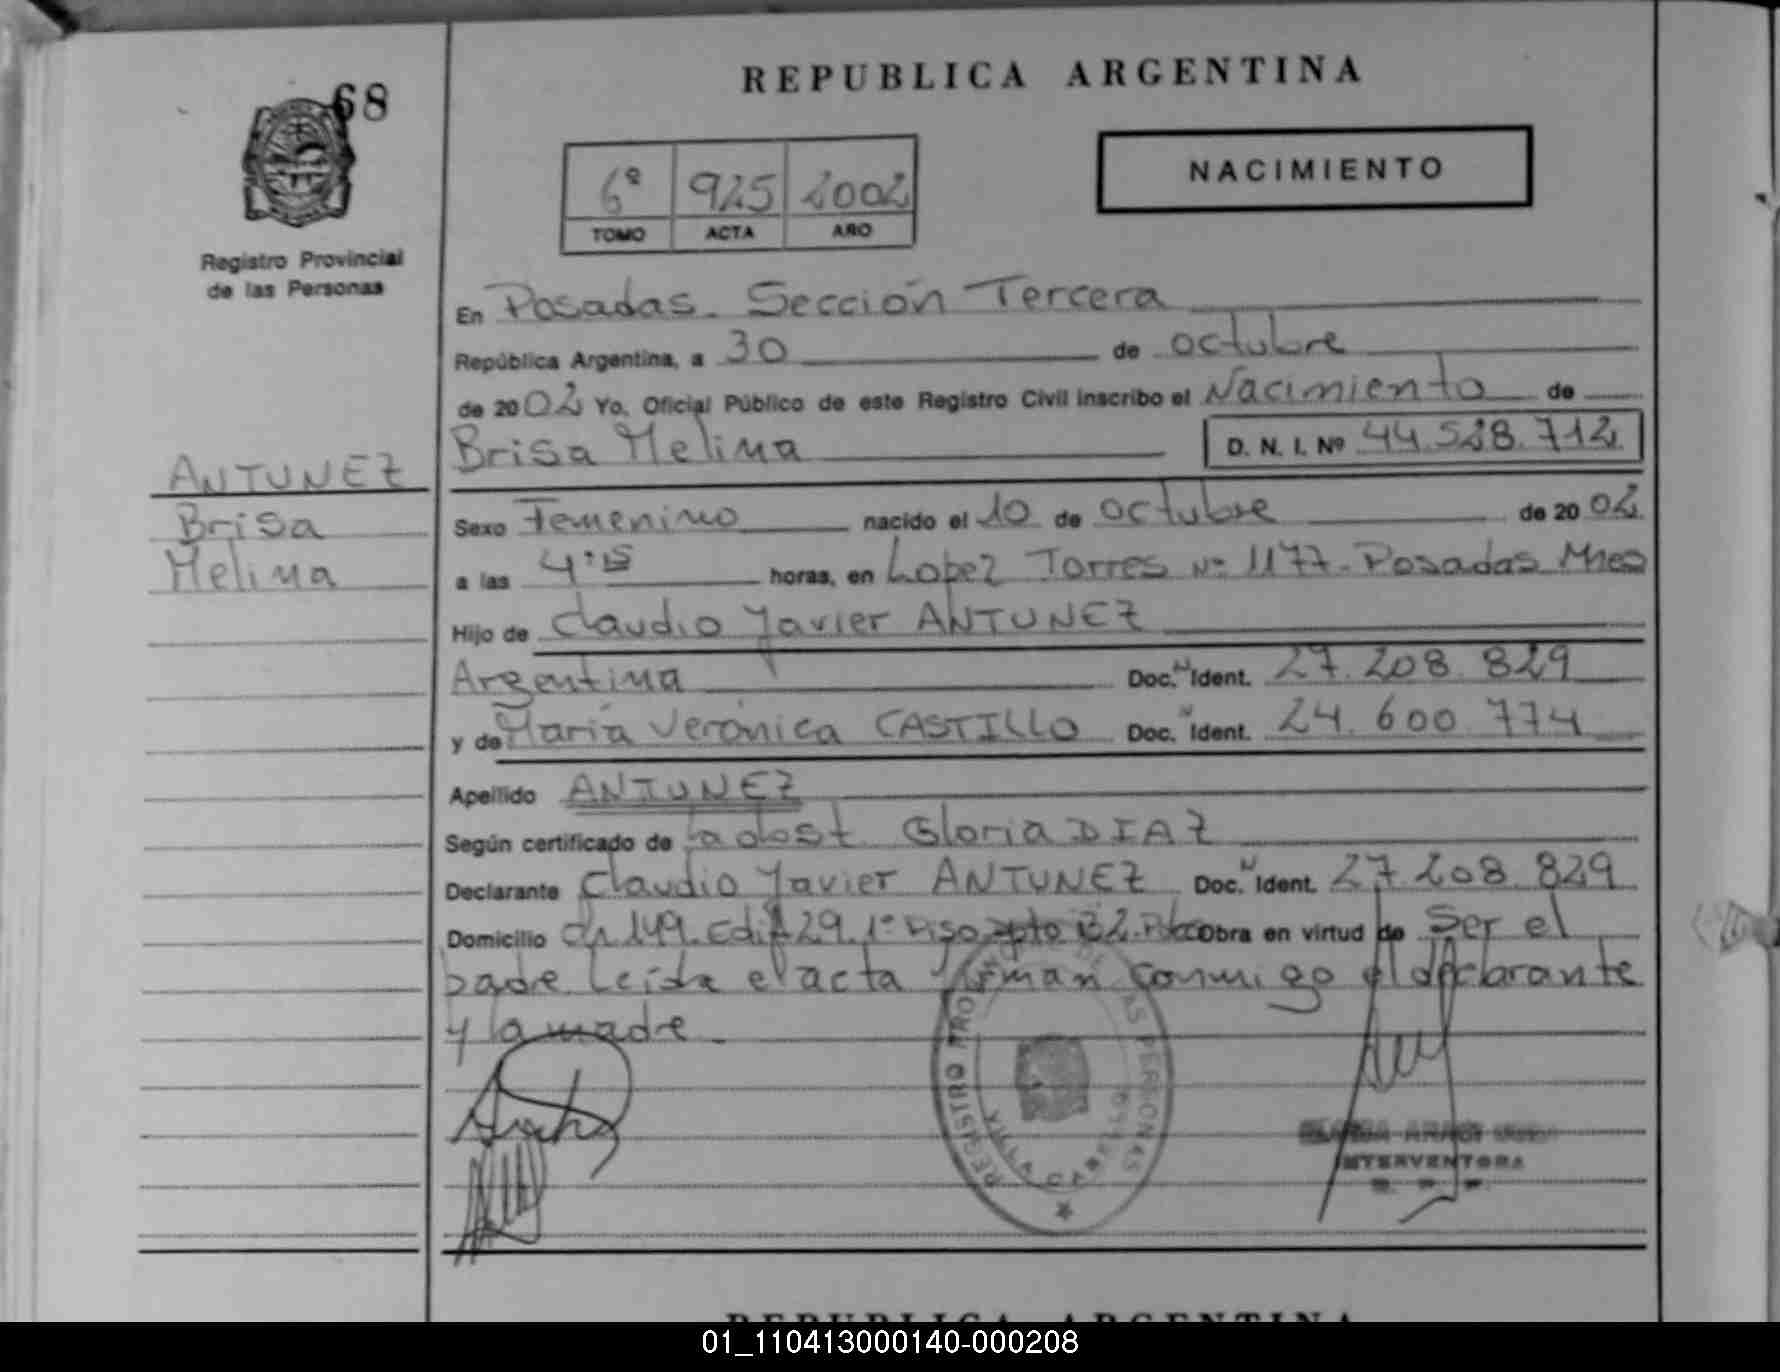 68
REPUBLICA ARGENTINA
6º 925 2002
TOMO ACTA AÑO
NACIMIENTO
Registro Provincial
de las Personas
En Posadas. Sección Tercera
República Argentina, a 30 de octubre
de 2002 Yo, Oficial Público de este Registro Civil inscribo el Nacimiento de
Brisa Melina D. N. I. Nº 44.528.712
ANTUNEZ
Brisa
Melina
Sexo Femenino nacido el 10 de octubre de 2002
a las 4:15 horas, en Lopez Torres Nº 1177. Posadas Mnes
Hijo de Claudio Javier ANTUNEZ
Argentina Doc. N Ident. 27.208.829
y de María Verónica CASTILLO Doc. N Ident. 24.600.774
Apellido ANTUNEZ
Según certificado de la obst. Gloria DIAZ
Declarante Claudio Javier ANTUNEZ Doc. N Ident. 27.208.829
Domicilio Ch 149. Edif 29. 1º Piso Dpto B2. Obra en virtud de Ser el
padre Leída el acta firman conmigo el declarante
y la madre.
REGISTRO PROVINCIAL DE LAS PERSONAS
INTERVENTORA
REPUBLICA ARGENTINA
01_110413000140-000208